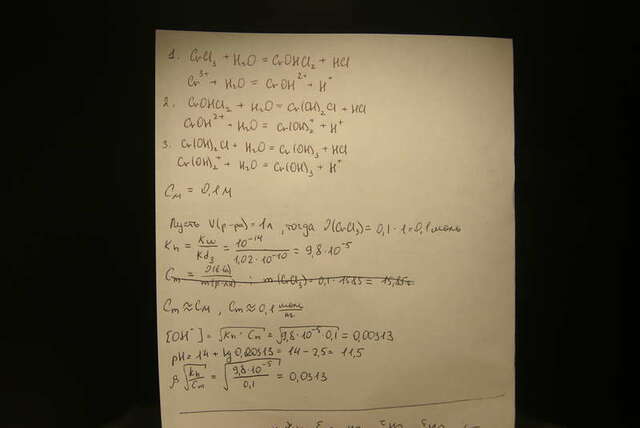 1. CrCl₃ + H₂O = CrOHCl₂ + HCl
Cr³⁺ + H₂O = CrOH²⁺ + H⁺
2. CrOHCl₂ + H₂O = Cr(OH)₂Cl + HCl
CrOH²⁺ + H₂O = Cr(OH)₂⁺ + H⁺
3. Cr(OH)₂Cl + H₂O = Cr(OH)₃ + HCl
Cr(OH)₂⁺ + H₂O = Cr(OH)₃ + H⁺
Cм = 0,1 м
Пусть V(р-ра) = 1л, тогда ν(CrCl₃) = 0,1 · 1 = 0,1 моль
Kh = Kw/Kd₃ = 10⁻¹⁴/1,02·10⁻¹⁰ = 9,8·10⁻⁵
Cm = ; m(CrCl₃) = 0,1 ·
Cm ≈ Cм, Cm ≈ 0,1 моль/кг
[OH⁻] = √Kh · Cm = √9,8·10⁻⁵·0,1 = 0,00313
pH = 14 + lg 0,00313 = 14 - 2,5 = 11,5
β √Kh/Cm = √9,8·10⁻⁵/0,1 = 0,0313